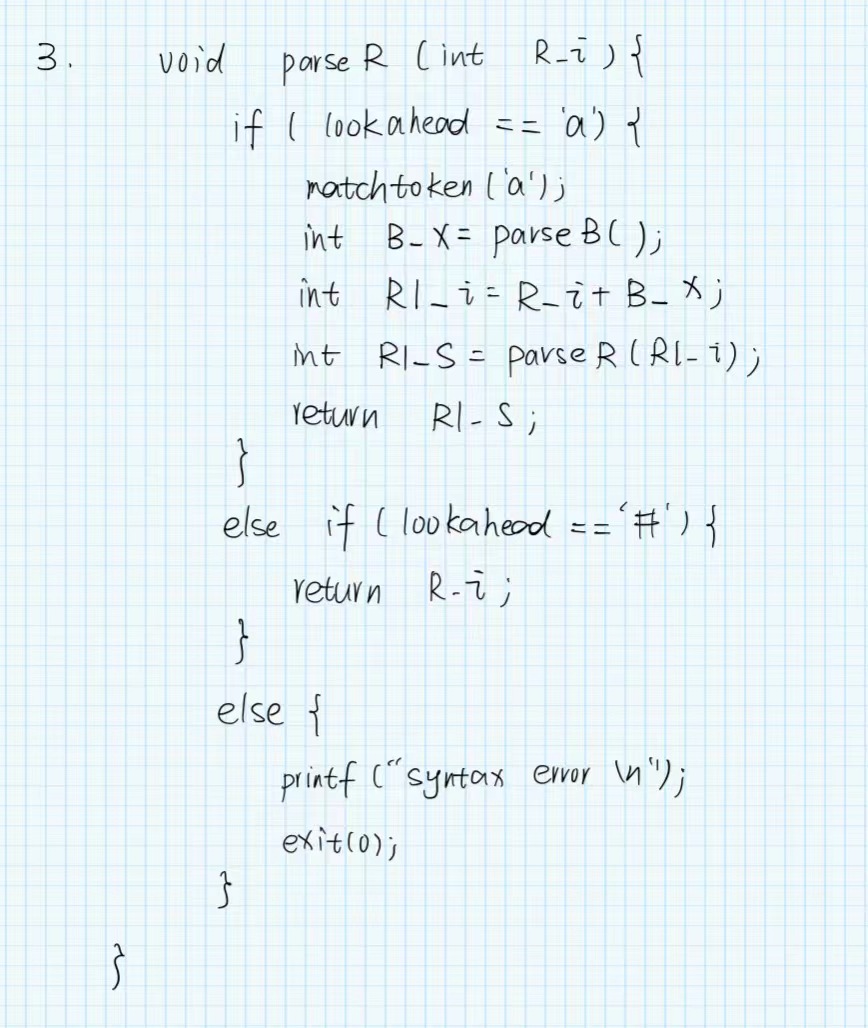 3. void parseR (int R_i) {
if ( lookahead == 'a') {
matchtoken ('a');
int B_x = parseB( );
int R1_i = R_i + B_x;
int R1_S = parseR (R1_i);
return R1_S;
}
else if ( lookahead == '#') {
return R_i;
}
else {
printf ("syntax error \n");
exit(0);
}
}